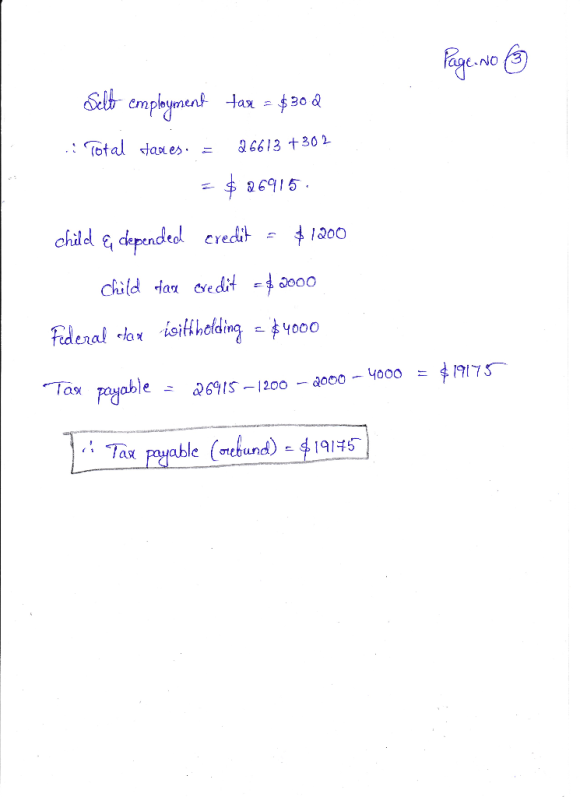 Page.No 3
Self employment tax = $302
∴ Total taxes. = 26613 + 302
= $ 26915.
child & depended credit = $ 1200
child tax credit = $ 2000
Federal tax withholding = $4000
Tax payable = 26915 - 1200 - 2000 - 4000 = $19175
∴ Tax payable (refund) = $19175